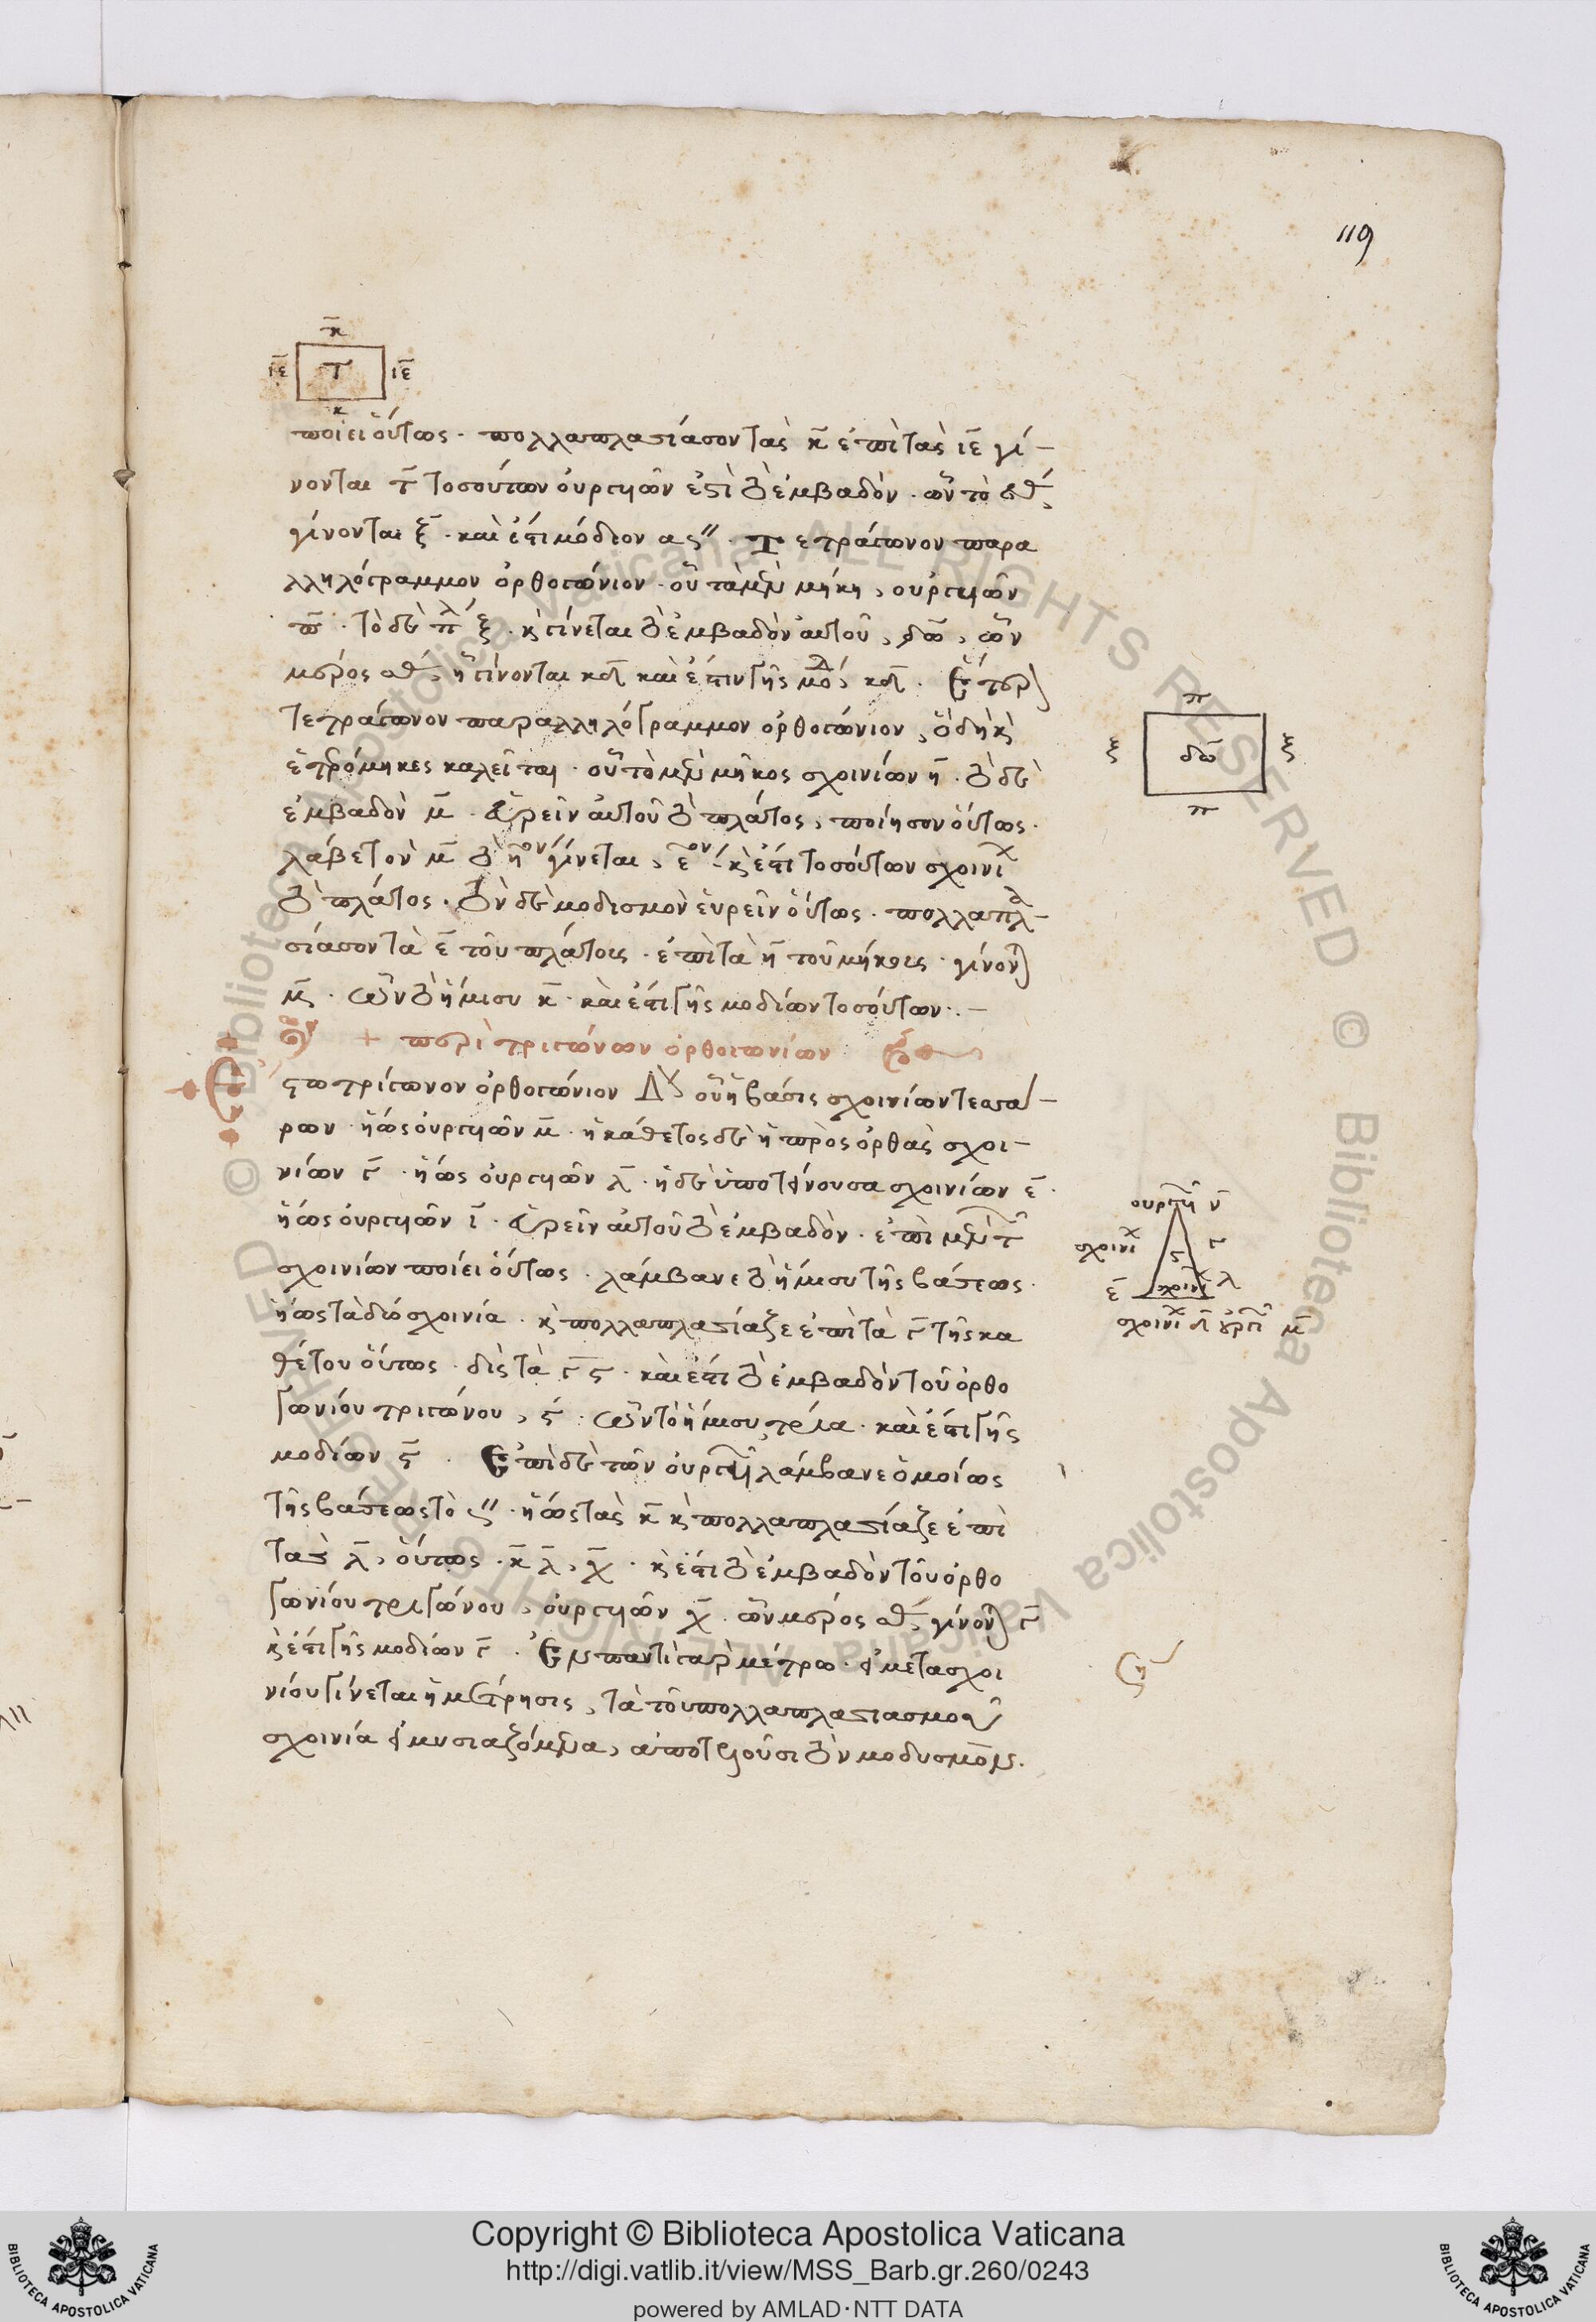 119
κ̅
ιε̅ τ̅ ιε̅
κ
ποίει οὕτως · πολλαπλασίασον τὰς κ̅ ἐπὶ τὰς ιε̅ γί-
νονται τ̅ τοσούτων ὀυργιῶν ἐστὶ τὸ ἐμβαδὸν · ὧν τὸ
γίνονται ξ̅ · καὶ ἔστι μόδιον α ς″ · Τετράγωνον παρα
λληλόγραμμον ὀρθογώνιον · οὗ τὰ μὲν μήκη, ουργιῶν
π̅ · τὸ δὲ πλ ξ̅ · κ γίνεται τὸ ἐμβαδὸν αὐτοῦ, δω̅, ὧν
μέρος γίνονται κδ̅ καὶ ἔστιν γῆς μο κδ̅ · Ἕτερ
τετράγωνον παραλληλόγραμμον ὀρθογώνιον, ὃ δὴ κ
ἑτερόμηκες καλεῖται · οὗ τὸ μὲν μῆκος σχοινίων η̅ · τὸ δὲ
ἐμβαδὸν μ̅ · εὑρεῖν αὐτοῦ τὸ πλάτος, ποίησον οὕτως ·
λάβε τὸν μ̅ τὸ η̅ον γίνεται, ε̅ον κ ἔστι τοσούτων σχοινι
τὸ πλάτος · τὸν δὲ μοδισμὸν εὑρεῖν οὕτως · πολλαπλ-
σίασον τὰ ε̅ τοῦ πλάτους · ἐπὶ τὰ η̅ τοῦ μήκους · γίνον
μ̅ · ὧν τὸ ἥμισυ κ̅ · καὶ ἔστι γῆς μοδίων τοσούτων ·.-
+ περὶ τριγώνων ὀρθογωνίων
Ἔστω τρίγωνον ὀρθογώνιον οὗ ἡ βάσις σχοινίων τεσσά-
ρων · ἤως ὀυργιῶν μ̅ · ἡ κάθετος δὲ ἡ πρὸς ὀρθὰς σχοι-
νίων γ̅ · ἤως ουργιῶν λ̅ · ἡ δὲ ὑποτείνουσα σχοινίων ε̅ ·
ἤως ὀυργιῶν ν̅ · εὑρεῖν αὐτοῦ τὸ ἐμβαδὸν · ἐπὶ μὲν τ
σχοινίων ποίει οὕτως · λάμβανε τὸ ἥμισυ τῆς βάσεως ·
ἤως τὰ δύο σχοινία · κ πολλαπλασίαζε ἐπὶ τὰ γ̅ τῆς κα
θέτου οὕτως · δὶς τὰ γ̅ ς · καὶ ἔστι τὸ ἐμβαδὸν τοῦ ὀρθο
γωνίου τριγώνου, ς̅ · ὧν τὸ ἥμισυ τρία · καὶ ἔστι γῆς
μοδίων γ̅ · Ἐπὶ δὲ τῶν ὀυργι λάμβανε ὁμοίως
τῆς βάσεως τὸ ς″ · ἤως τὰς κ̅ κ πολλαπλασίαζε ἐπὶ
τὰς λ̅, οὕτως · κ̅ λ̅, χ̅ · κ ἔστι τὸ ἐμβαδὸν τοῦ ὀρθο
γωνίου τριγώνου, ὀυργιῶν χ̅ · ὧν μέρος γίνον γ̅
κ ἔστι γῆς μοδίων γ̅ · Ἐν παντὶ γὰρ μέτρω · ἐν μετα σχοι
νίου γίνεται ἡ μέτρησις, τὰ τοῦ πολλαπλασιασμοῦ
σχοινία ἡμισιαζόμενα, ἀποτελοῦσι τὸν μοδυσμόν.
π
ξ δω̅ ξ
π
ουργι ν̅
σχοινι ς γ̅
ε̅ λ
σχοινι δ̅ ουργι μ̅
Copyright © Biblioteca Apostolica Vaticana
http://digi.vatlib.it/view/MSS_Barb.gr.260/0243
powered by AMLAD·NTT DATA
BIBLIOTECA APOSTOLICA VATICANA
BIBLIOTECA APOSTOLICA VATICANA